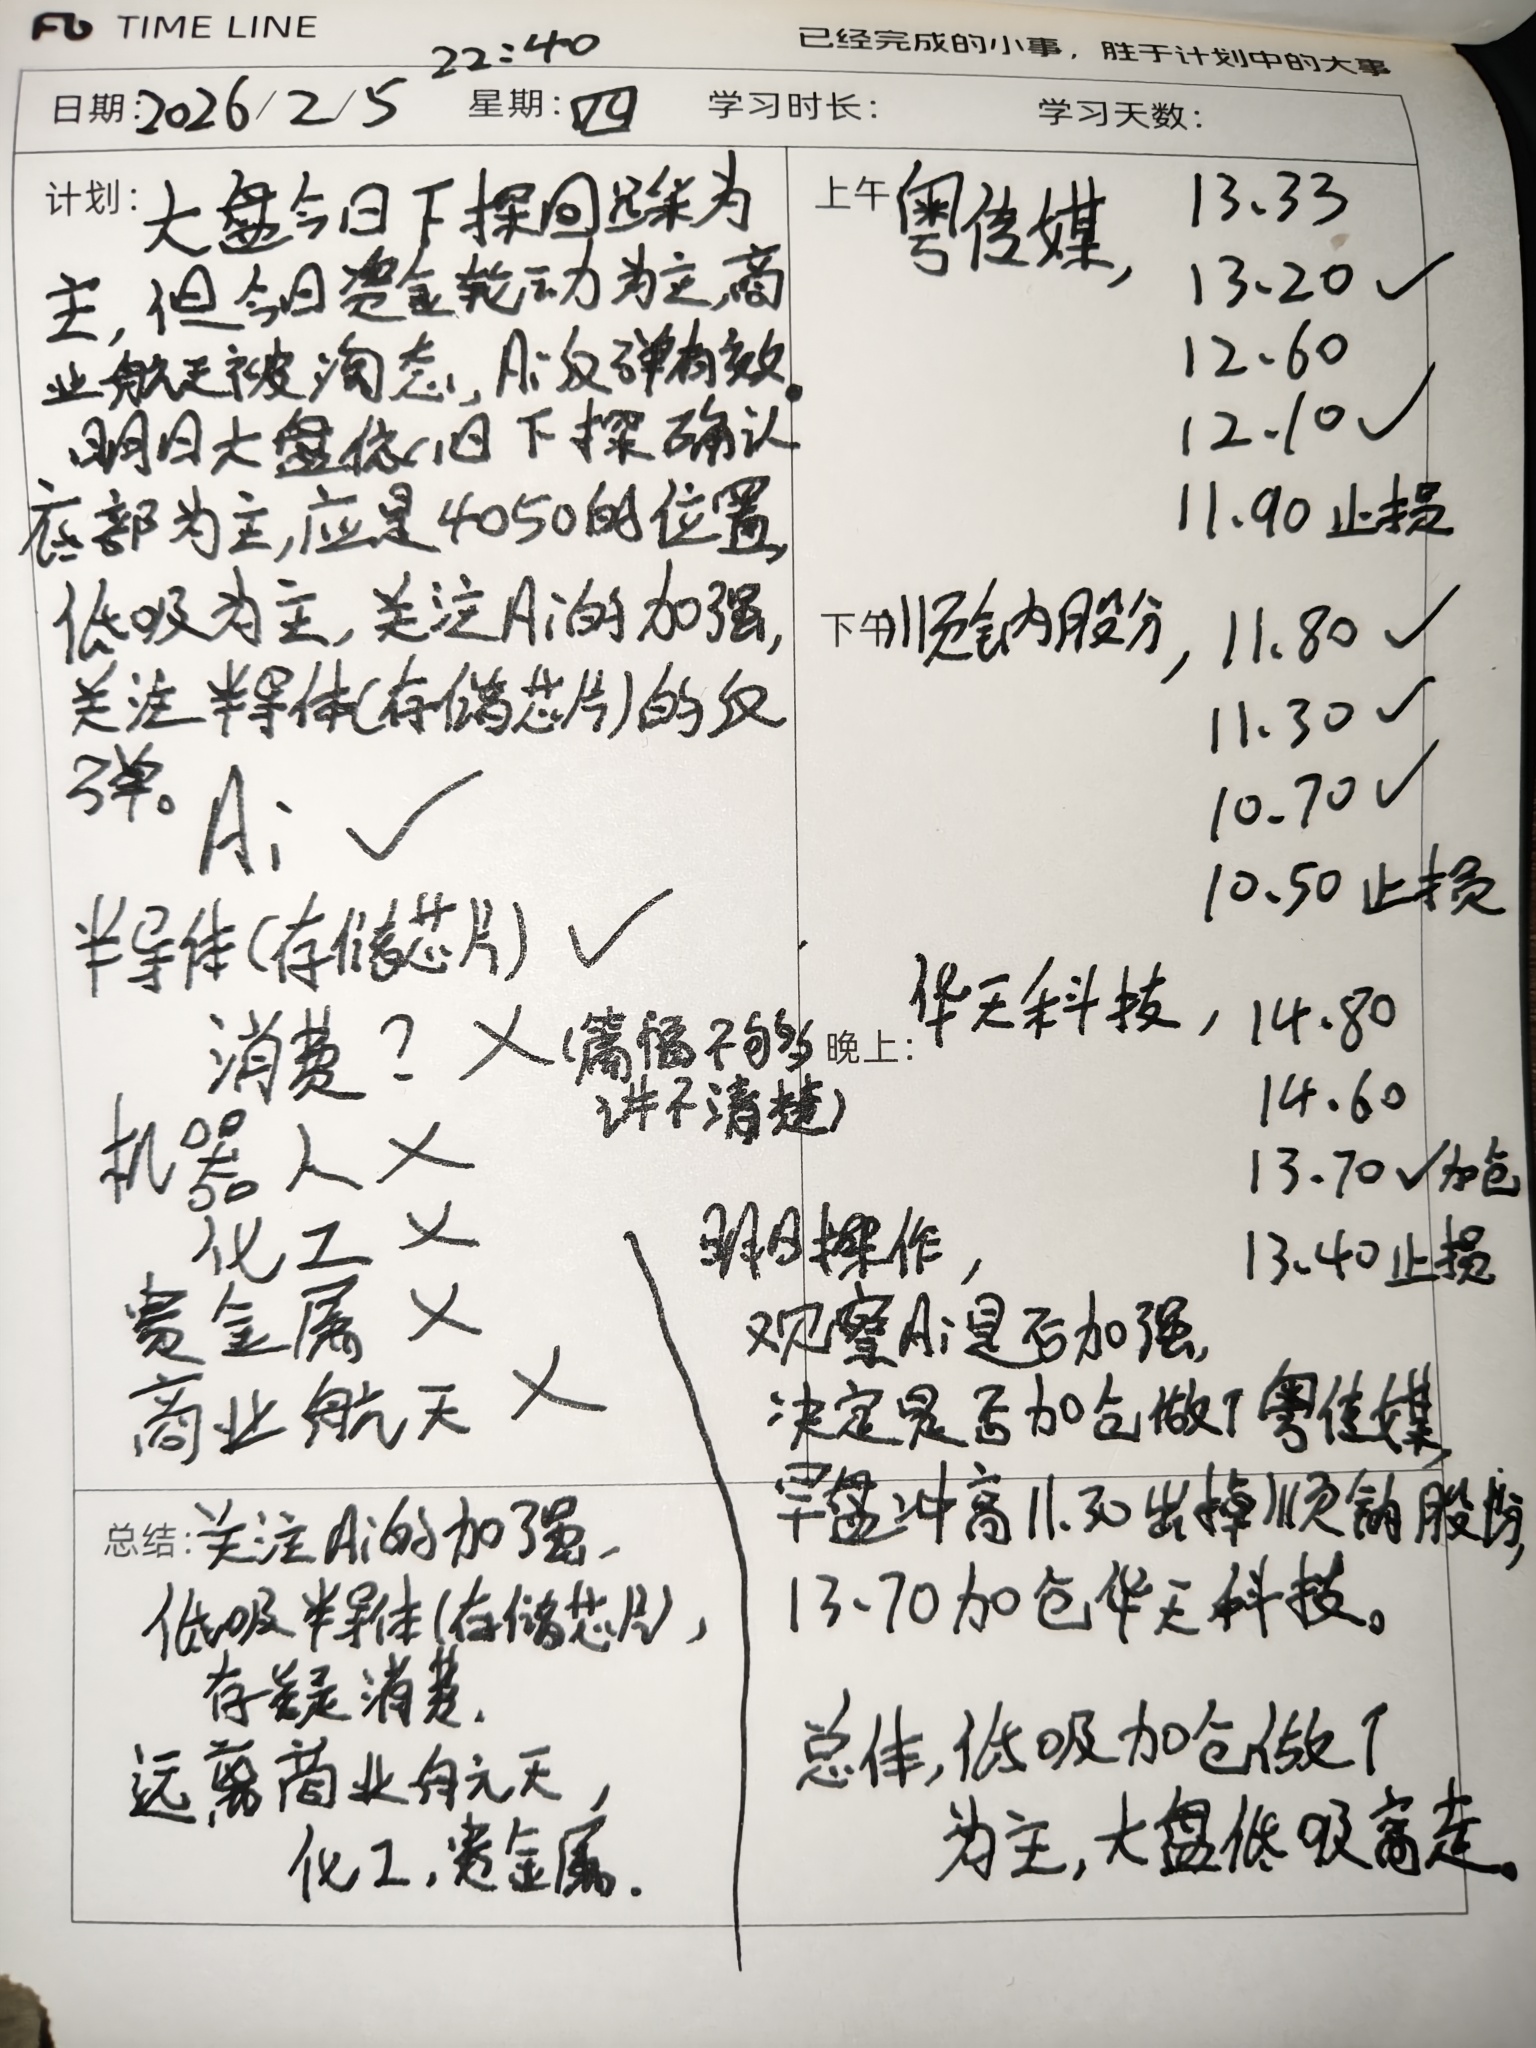 TIME LINE
22:40
已经完成的小事，胜于计划中的大事
日期:2026/2/5
星期:四
学习时长:
学习天数:
计划:大盘今日下探回踩为
主,但今日资金轮动为主,商
业航天被淘态,Ai反弹有效。
明日大盘依旧下探确认
底部为主,应是4050的位置,
低吸为主,关注Ai的加强,
关注半导体(存储芯片)的反
弹。
Ai ✓
半导体(存储芯片) ✓
消费? ×(篇幅不够
讲不清楚)
机器人 ×
化工 ×
贵金属 ×
商业航天 ×
总结:关注Ai的加强、
低吸半导体(存储芯片),
存疑消费.
远离商业航天,
化工,贵金属.
上午 粤传媒, 13.33
13.20 ✓
12.60
12.10 ✓
11.90 止损
下午 顺钠股份, 11.80 ✓
11.30 ✓
10.70 ✓
10.50 止损
晚上: 华天科技, 14.80
14.60
13.70 ✓加仓
13.40 止损
明日操作,
观察Ai是否加强,
决定是否加仓做T粤传媒,
早盘冲高11.30出掉顺钠股份,
13.70加仓华天科技。
总体,低吸加仓做T
为主,大盘低吸高走。